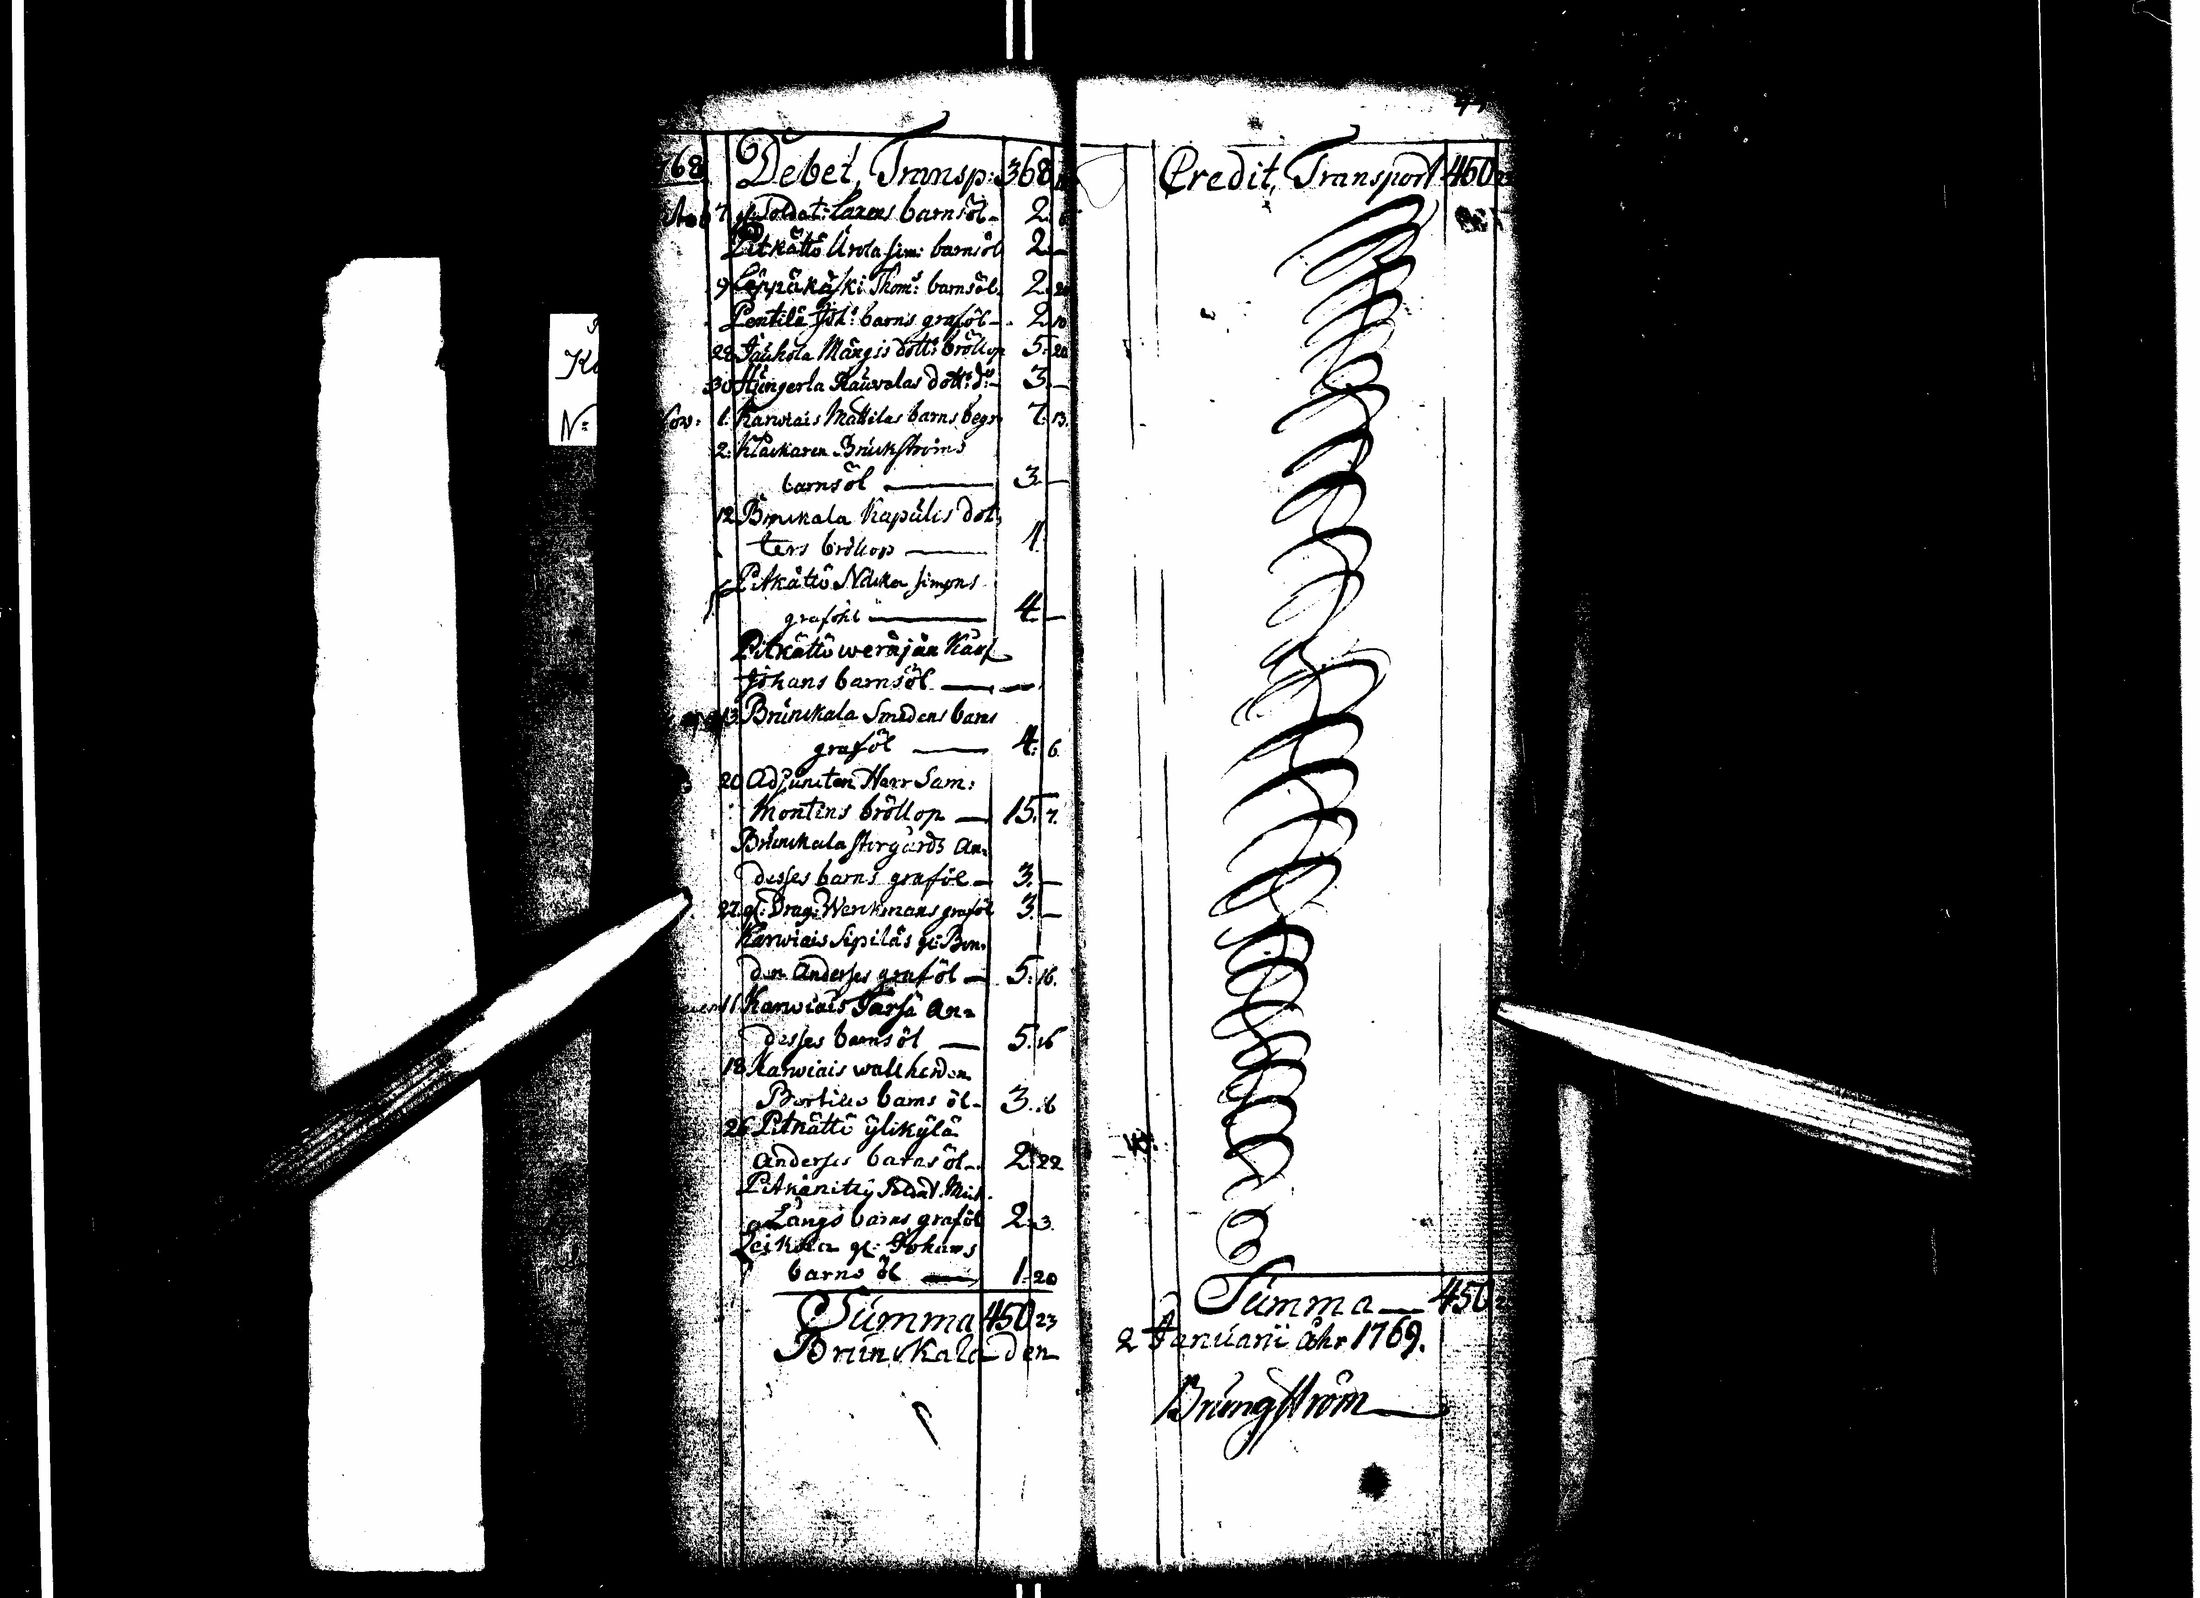 768 Debet, Transp: 368
7 gl: Soldat: Laxens barnsöl 2
Pitkättö Urola Sim: barnsöl 2 —
9 Leppäkåski Thom: barnsöl 2 20
Pentilä Joh: barns graföl — 2 10
22 Jauhola Mårgis dott: bröllop 5: 20
30 Hungerla Rauvalas dott: d:o — 3 —
Nov: 1. Karwiais Mattilas barns begr: 7: 13.
2: Klåckaren Brunkströms
barnsöl — 3 —
12 Brunkala Kapulis dot
ters bröllop — 1
Pitkättö Näcka Simons
graföhl — 4 —
Pitkättö weräjän Karl
Johans barnsöl — —
13 Brunkala Smedens barns
graföl — 4: 6
20 Adjuncten Herr Sam:
Montins bröllop — 15: 7.
Brunkala storgårds An=
desses barns graföl — 3. —
27. gl: Drag: Werkmans graföl 3. —
Karwiais Sipiläs gl: Bon=
den Anderses graföl — 5: 16.
11 Karwiais Tarsa An=
desses barnsöl — 5. 16
18 Karwiais wallherden
Bertills barns öl — 3. 16
26 Pitkättö ÿlikylä
Anderses barnsöl — 2: 22
Pitkäniity Soldat Mich.
Långs barns graföl 2. 3.
gl: Johans
barns öl — 1: 20
Summa 450 23
Brunkala den
Credit, Transport 450 23
Summa — 450
2 Januarii åhr 1769.
Brungström
Ka
N: